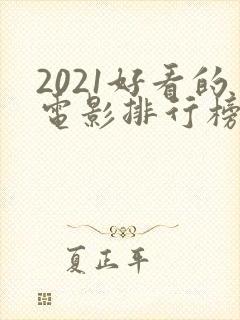 2021好看的
电影排行榜
夏正年